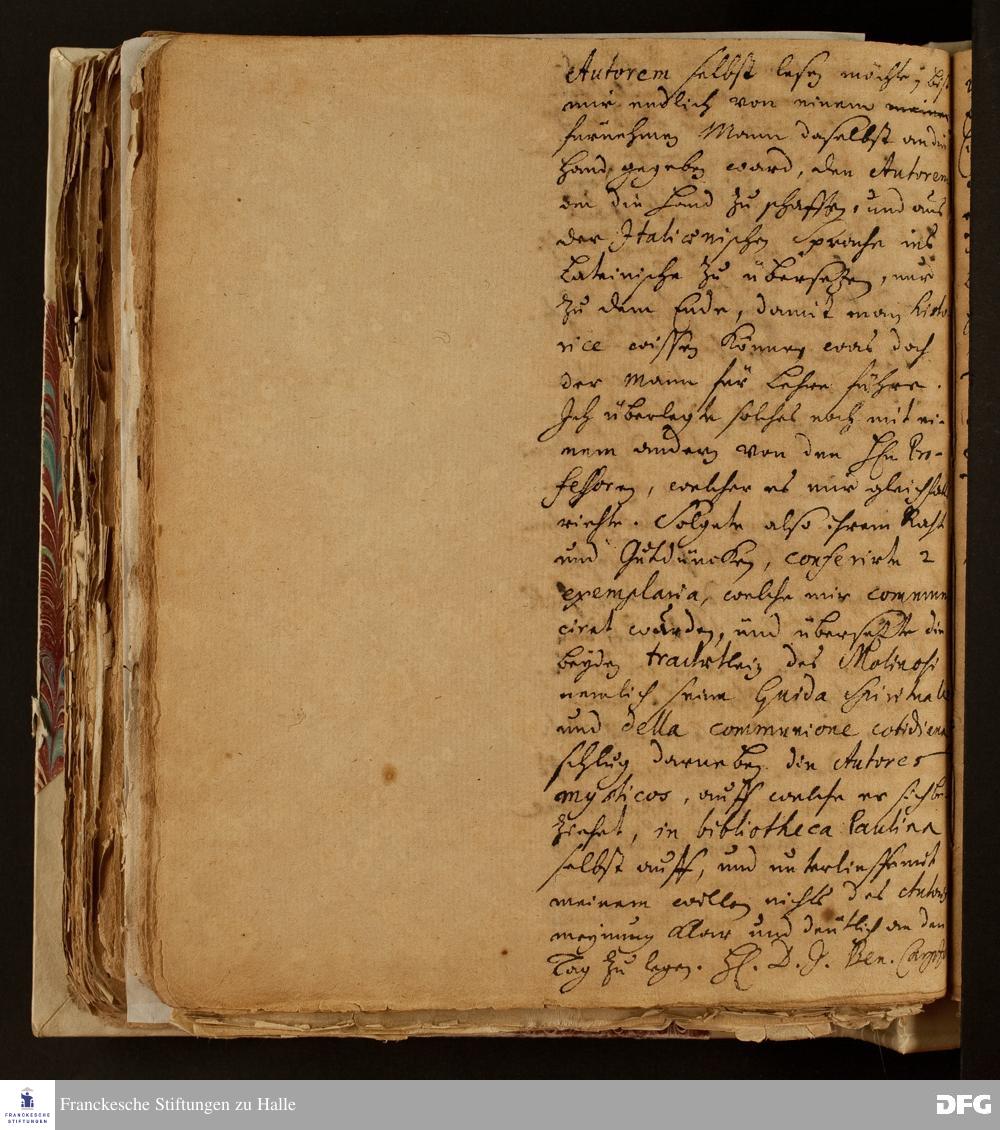 Autorem selbst lesen möchte; biß
mir endlich von einem
fürnehmen Mann daselbst an die
Hand gegeben ward, den Autorem
an die Hand zu schaffen, und aus
der Italiänischen Sprache ins
Lateinische zu übersetzen, nur
zu dem Ende, damit man histo
rice wissen könne, was doch
der Mann für Lehre führe.
Ich überlegte solches noch mit ei-
nem andern von den Hn Pro-
fessoren, welcher es mir gleichfals
riethe. Folgete also ihrem Rath
und Gutdüncken, conferirte 2
exemplaria, welche mir communi
ciret wurden, und übersetzte die
beyden tractätlein des Molinosi
nemlich seine Guida Spirituale
und della communione cotidiana
schlug darneben die Autores
mysticos, auff welche er sich be
ziehet, in bibliotheca Paulina
selbst auff, und unterließ mit
meinem willen nichts des Autoris
meynung klar und deutlich an den
Tag zu legen. H. D. J. Ben. Carpzov
Franckesche Stiftungen zu Halle
FRANCKESCHE
STIFTUNGEN
DFG